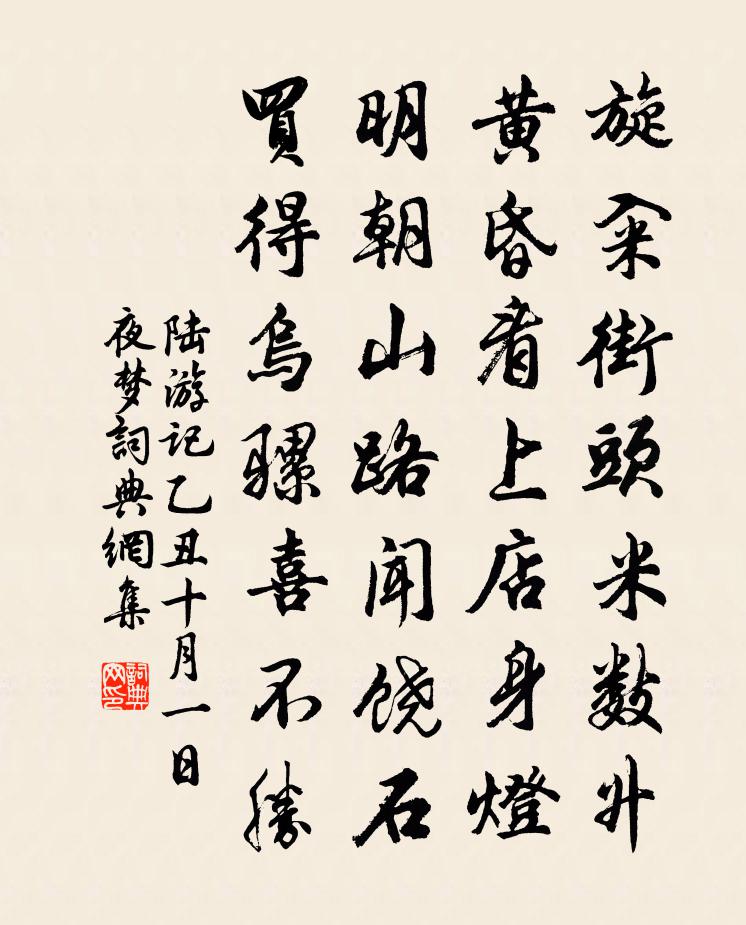 旋籴街頭米數升
黄昏看上店身燈
明朝山路闻饶石
買得烏騾喜不勝
陆游记乙丑十月一日
夜梦詞典網集
詞典
网印